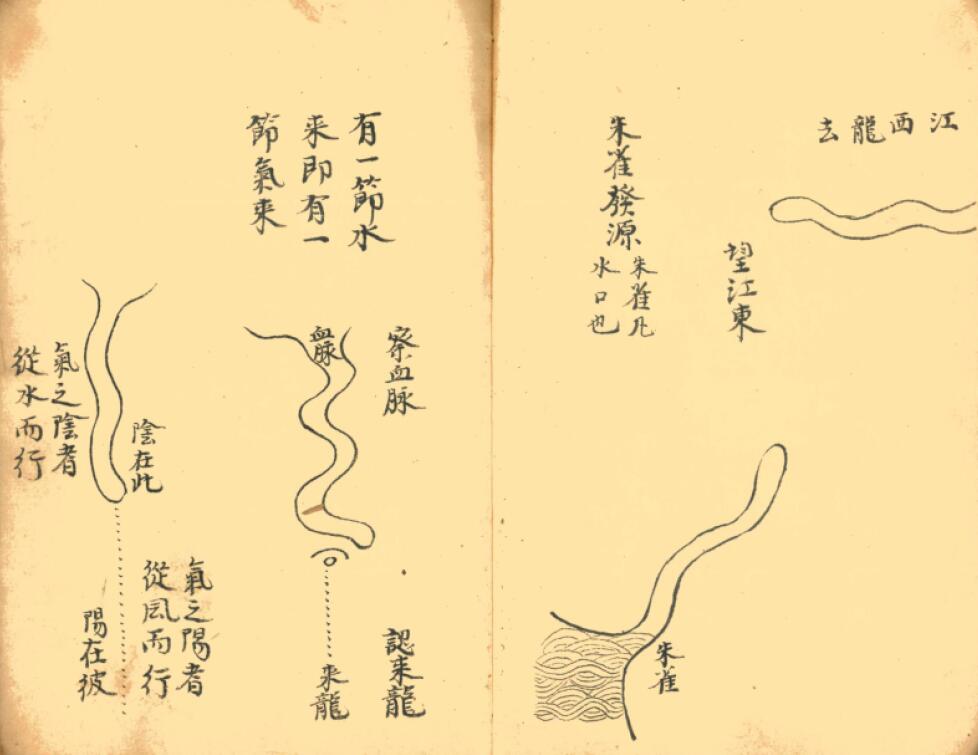 江西龍去
望江東
朱雀發源
朱雀凡
水口也
朱雀
有一節水
来即有一
節氣来
察血脉
血脉
認来龍
来龍
陰在此
氣之陰者
從水而行
氣之陽者
從風而行
陽在彼